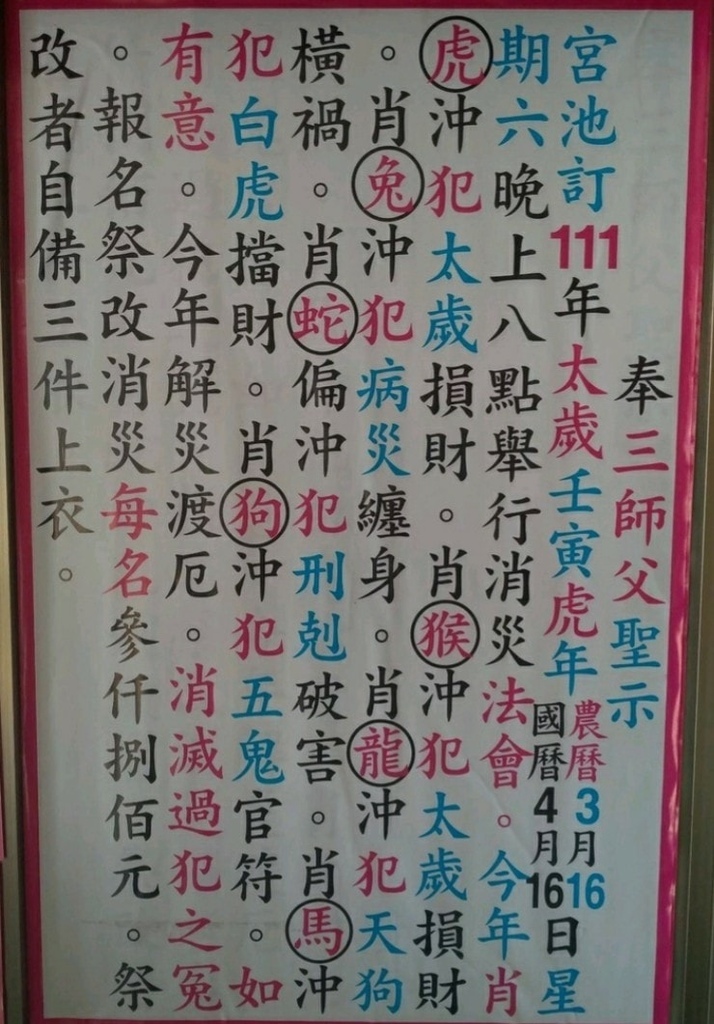 奉三師父聖示
宮池訂111年太歲壬寅虎年農曆3月16國曆4月16日星
期六晚上八點舉行消災法會。今年肖
虎沖犯太歲損財。肖猴沖犯太歲損財
。肖兔沖犯病災纏身。肖龍沖犯天狗
橫禍。肖蛇偏沖犯刑剋破害。肖馬沖
犯白虎擋財。肖狗沖犯五鬼官符。如
有意。今年解災渡厄。消滅過犯之冤
。報名祭改消災每名參仟捌佰元。祭
改者自備三件上衣。